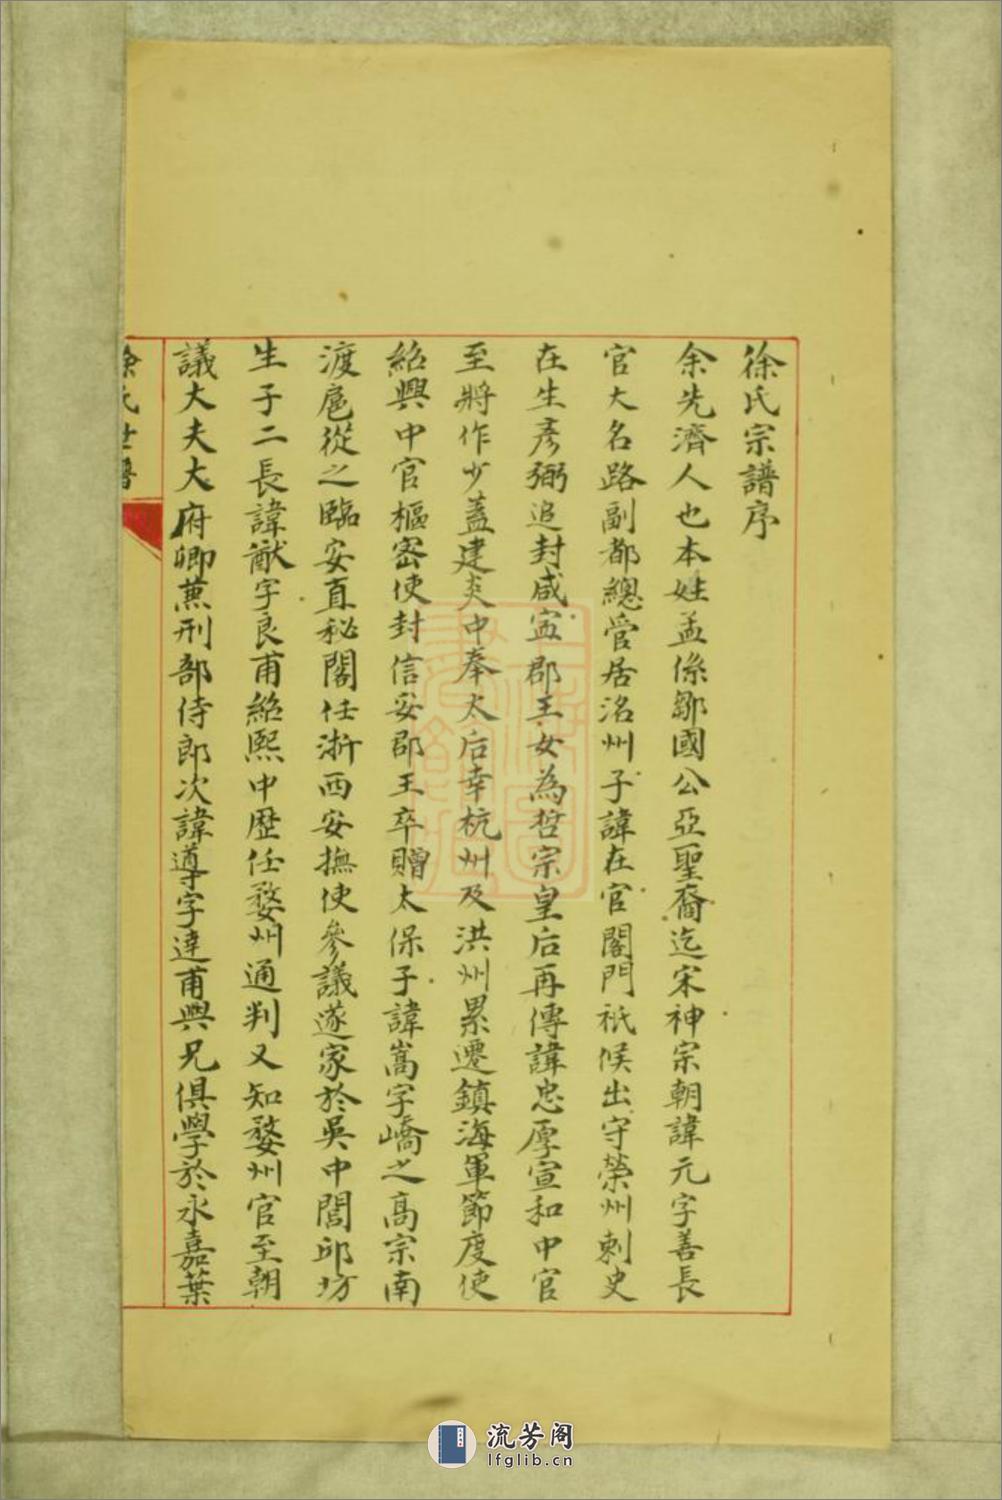 徐氏宗譜序
余先濟人也本姓孟係鄒國公亞聖裔迄宋神宗朝諱元字善長
官大名路副都總管居洺州子諱在官閣門祇候出守榮州刺史
在生彥弼追封咸寍郡王女為哲宗皇后再傳諱忠厚宣和中官
至將作少蓋建炎中奉太后幸杭州及洪州累遷鎮海軍節度使
紹興中官樞密使封信安郡王卒贈太保子諱嵩字嶠之高宗南
渡扈從之臨安直秘閣任浙西安撫使參議遂家於吳中閶邱坊
生子二長諱猷字良甫紹熙中歷任婺州通判又知婺州官至朝
議大夫大府卿蕙刑部侍郎次諱導字達甫與兄俱學於永嘉葉
徐氏世譜
流芳阁
lfglib.cn